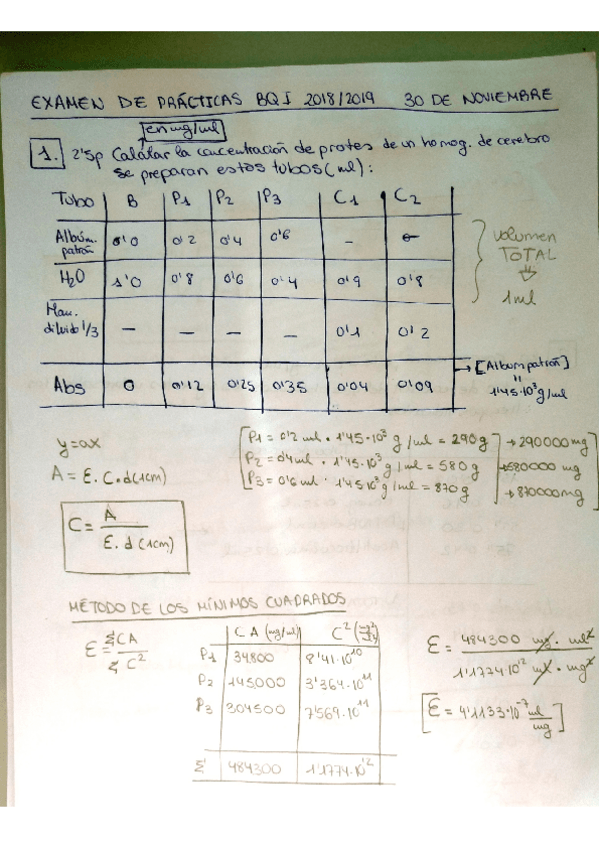 EXAMEN DE PRÁCTICAS BQI 2018/2019 30 DE NOVIEMBRE
en mg/ml
1. 2'5p Calcular la concentración de protes de un homog. de cerebro
se preparan estos tubos (ml):
Tubo B P1 P2 P3 C1 C2
Album. patrón 0'0 0'2 0'4 0'6 – –
H2O 1'0 0'8 0'6 0'4 0'9 0'8
diluido 1/3 – – – – 0'1 0'2
Abs 0 0'12 0'25 0'35 0'04 0'09
volumen
TOTAL
1ml
[Album patrón]
"
1'45·10³ g/ml
y=ax
A = E. C. d(1cm)
C = A / E. d (1cm)
P1 = 0'2 ml · 1'45·10³ g/ml = 290g → 290000 mg
P2 = 0'4 ml · 1'45·10³ g/ml = 580 g → 580000 mg
P3 = 0'6 ml · 1'45·10³ g/ml = 870 g → 870000 mg
MÉTODO DE LOS MÍNIMOS CUADRADOS
E = ΣCA / ΣC²
CA (mg/ml) C² (mg²/ml²)
P1 34800 8'41·10¹⁰
P2 145000 3'364·10¹¹
P3 304500 7'569·10¹¹
Σ 484300 1'1774·10¹²
E = 484300 mg · ml² / 1'1774·10¹² ml · mg²
E = 4'1133·10⁻⁷ ml/mg